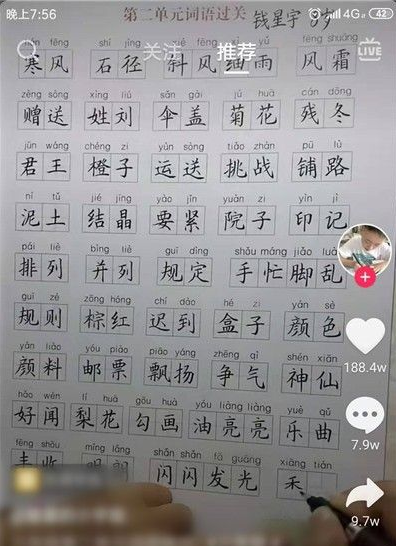 晚上7:56
4G
42
第二单元词语过关 钱星宇
关注
推荐
LIVE
fēng shí jìng fēng yǔ fēng shuāng
寒风 石径 斜风细雨 风霜
zèng sòng xìng liú sǎn gài jú huā cán dōng
赠送 姓刘 伞盖 菊花 残冬
jūn wáng chéng zi yùn sòng tiǎo zhàn pū lù
君王 橙子 运送 挑战 铺路
ní tǔ jié jīng yào jǐn yuàn zi yìn jì
泥土 结晶 要紧 院子 印记
pái liè bìng liè guī dìng shǒu máng jiǎo luàn
排列 并列 规定 手忙脚乱
guī zé zōng hóng chí dào hé zi yán sè
规则 棕红 迟到 盒子 颜色
yán liào yóu piào piāo yáng zhēng qì shén xiān
颜料 邮票 飘扬 争气 神仙
hǎo wén lí huā gōu huà yóu liàng liàng yuè qǔ
好闻 梨花 勾画 油亮亮 乐曲
fēng shōu míng lǎng fā guāng xiāng tián
丰收 闪闪发光 禾
188.4w
7.9w
9.7w